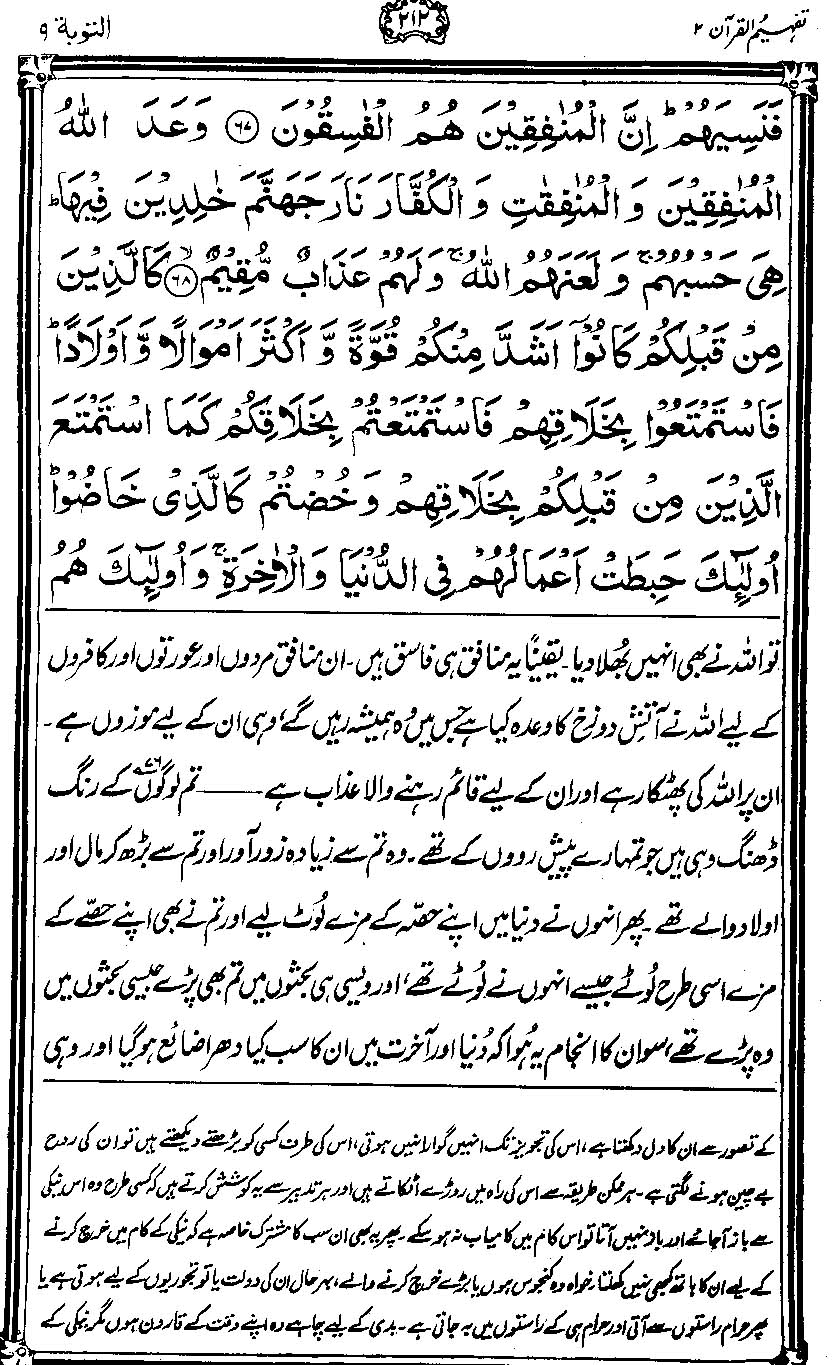 تفہیم القرآن ۲
۲۱۲
التوبة ۹
فَنَسِيَهُمْ ؕ اِنَّ الْمُنٰفِقِيْنَ هُمُ الْفٰسِقُوْنَ ﴿۶۷﴾ وَعَدَ اللّٰهُ
الْمُنٰفِقِيْنَ وَ الْمُنٰفِقٰتِ وَ الْكُفَّارَ نَارَ جَهَنَّمَ خٰلِدِيْنَ فِيْهَا ؕ
هِيَ حَسْبُهُمْ ۚ وَ لَعَنَهُمُ اللّٰهُ ۚ وَ لَهُمْ عَذَابٌ مُّقِيْمٌ ﴿۶۸﴾ۙ كَالَّذِيْنَ
مِنْ قَبْلِكُمْ كَانُوْۤا اَشَدَّ مِنْكُمْ قُوَّةً وَّ اَكْثَرَ اَمْوَالًا وَّ اَوْلَادًا ؕ
فَاسْتَمْتَعُوْا بِخَلَاقِهِمْ فَاسْتَمْتَعْتُمْ بِخَلَاقِكُمْ كَمَا اسْتَمْتَعَ
الَّذِيْنَ مِنْ قَبْلِكُمْ بِخَلَاقِهِمْ وَ خُضْتُمْ كَالَّذِيْ خَاضُوْا ؕ
اُولٰٓئِكَ حَبِطَتْ اَعْمَالُهُمْ فِي الدُّنْيَا وَ الْاٰخِرَةِ ۚ وَ اُولٰٓئِكَ هُمُ
تو اللہ نے بھی انہیں بھُلا دیا۔ یقینًا یہ منافق ہی فاسق ہیں۔ ان منافق مردوں اور عورتوں اور کافروں
کے لیے اللہ نے آتشِ دوزخ کا وعدہ کیا ہے جس میں وہ ہمیشہ رہیں گے، وہی ان کے لیے موزوں ہے۔
ان پر اللہ کی پھٹکار ہے اور ان کے لیے قائم رہنے والا عذاب ہے —— تم لوگوں۷۶ کے رنگ
ڈھنگ وہی ہیں جو تمہارے پیش رووں کے تھے۔ وہ تم سے زیادہ زور آور اور تم سے بڑھ کر مال اور
اولاد والے تھے۔ پھر انہوں نے دنیا میں اپنے حصّہ کے مزے لُوٹ لیے اور تم نے بھی اپنے حصّے کے
مزے اسی طرح لُوٹے جیسے انہوں نے لُوٹے تھے، اور ویسی ہی بحثوں میں تم بھی پڑے جیسی بحثوں میں
وہ پڑے تھے، سو ان کا انجام یہ ہُوا کہ دُنیا اور آخرت میں ان کا سب کیا دھرا ضائع ہو گیا اور وہی
کے تصور سے ان کا دل دکھتا ہے، اس کی تجویز تک انہیں گوارا نہیں ہوتی، اس کی طرف کسی کو بڑھتے دیکھتے ہیں تو ان کی روح
بے چین ہونے لگتی ہے۔ ہر ممکن طریقہ سے اس کی راہ میں روڑے اٹکاتے ہیں اور ہر تدبیر سے یہ کوشش کرتے ہیں کہ کسی طرح وہ اس نیکی
سے باز آجائے اور باز نہیں آتا تو اس کام میں کامیاب نہ ہو سکے۔ پھر یہ بھی ان سب کا مشترک خاصہ ہے کہ نیکی کے کام میں خرچ کرنے
کے لیے ان کا ہاتھ کبھی نہیں کھلتا۔ خواہ وہ کنجوس ہوں یا بڑے خرچ کرنے والے، بہر حال ان کی دولت یا تو تجوریوں کے لیے ہوتی ہے یا
پھر حرام راستوں سے آتی اور حرام ہی کے راستوں میں بہ جاتی ہے۔ بدی کے لیے چاہے وہ اپنے وقت کے قارون ہوں مگر نیکی کے